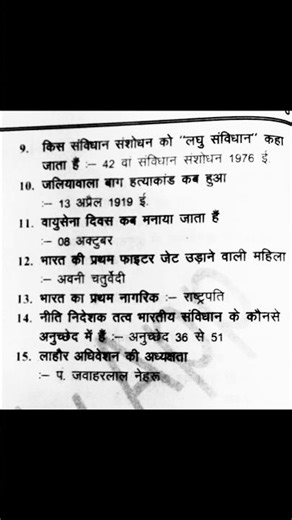 9. किस संविधान संशोधन को "लघु संविधान" कहा
जाता हैं :– 42 वां संविधान संशोधन 1976 ई.
10. जलियावाला बाग हत्याकांड कब हुआ
:– 13 अप्रैल 1919 ई.
11. वायुसेना दिवस कब मनाया जाता हैं
:– 08 अक्टुबर
12. भारत की प्रथम फाइटर जेट उड़ाने वाली महिला
:– अवनी चतुर्वेदी
13. भारत का प्रथम नागरिक :– राष्ट्रपति
14. नीति निदेशक तत्व भारतीय संविधान के कौनसे
अनुच्छेद में हैं :– अनुच्छेद 36 से 51
15. लाहौर अधिवेशन की अध्यक्षता
:– प. जवाहरलाल नेहरू